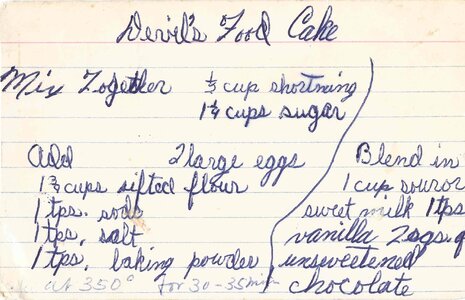 Devil's Food Cake
Mix Together ½ cup shortning
1¼ cups sugar
Add 2 large eggs
1¾ cups sifted flour
1 tps. soda
1 tps. salt
1 tps. baking powder
at 350° for 30-35 min
Blend in
1 cup sour or
sweet milk 1 tps
vanilla 2 sqs.
unsweetened
chocolate